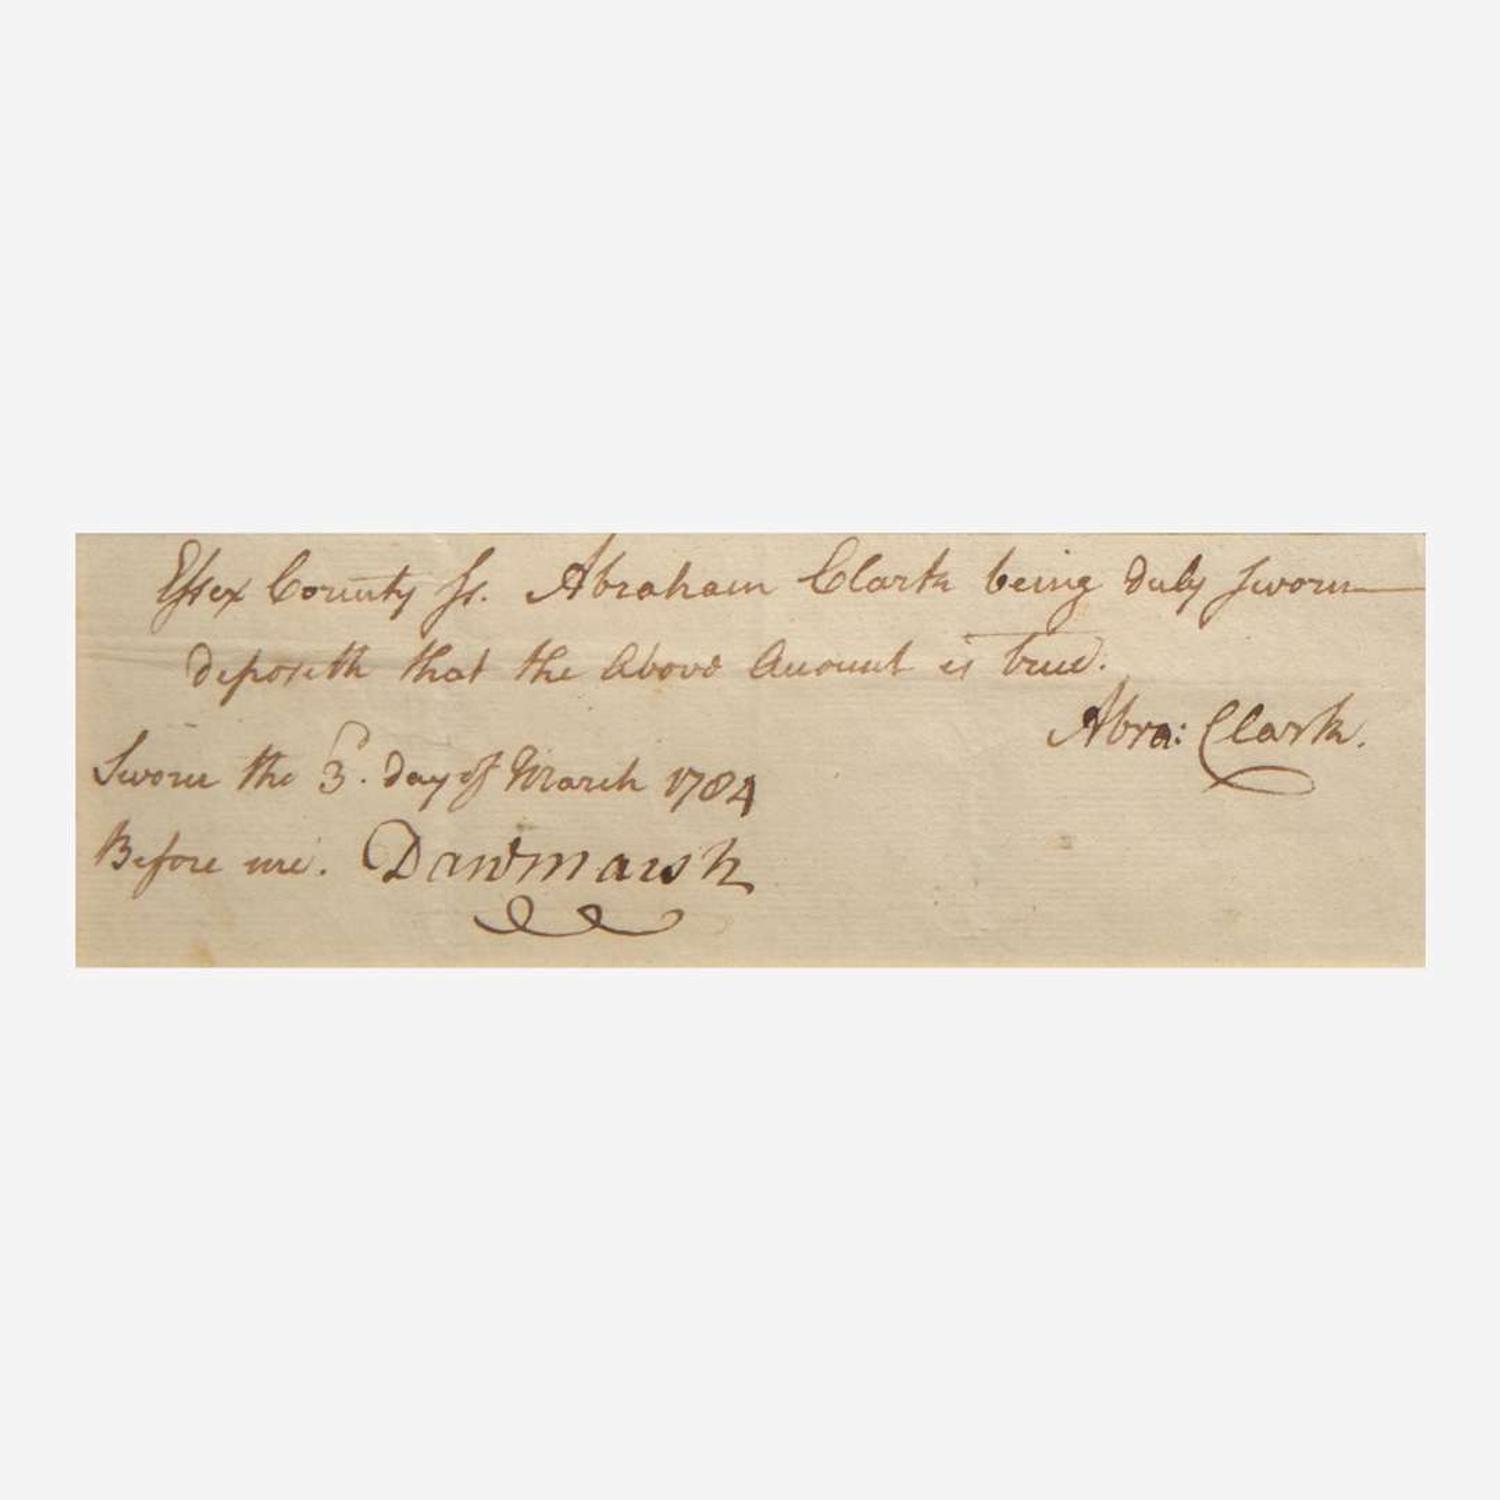 Essex County Ss. Abraham Clark being duly Sworn
deposeth that the Above Amount is true.
Abra: Clark.
Sworn the 3d. day of March 1784
Before me. Danl Marsh